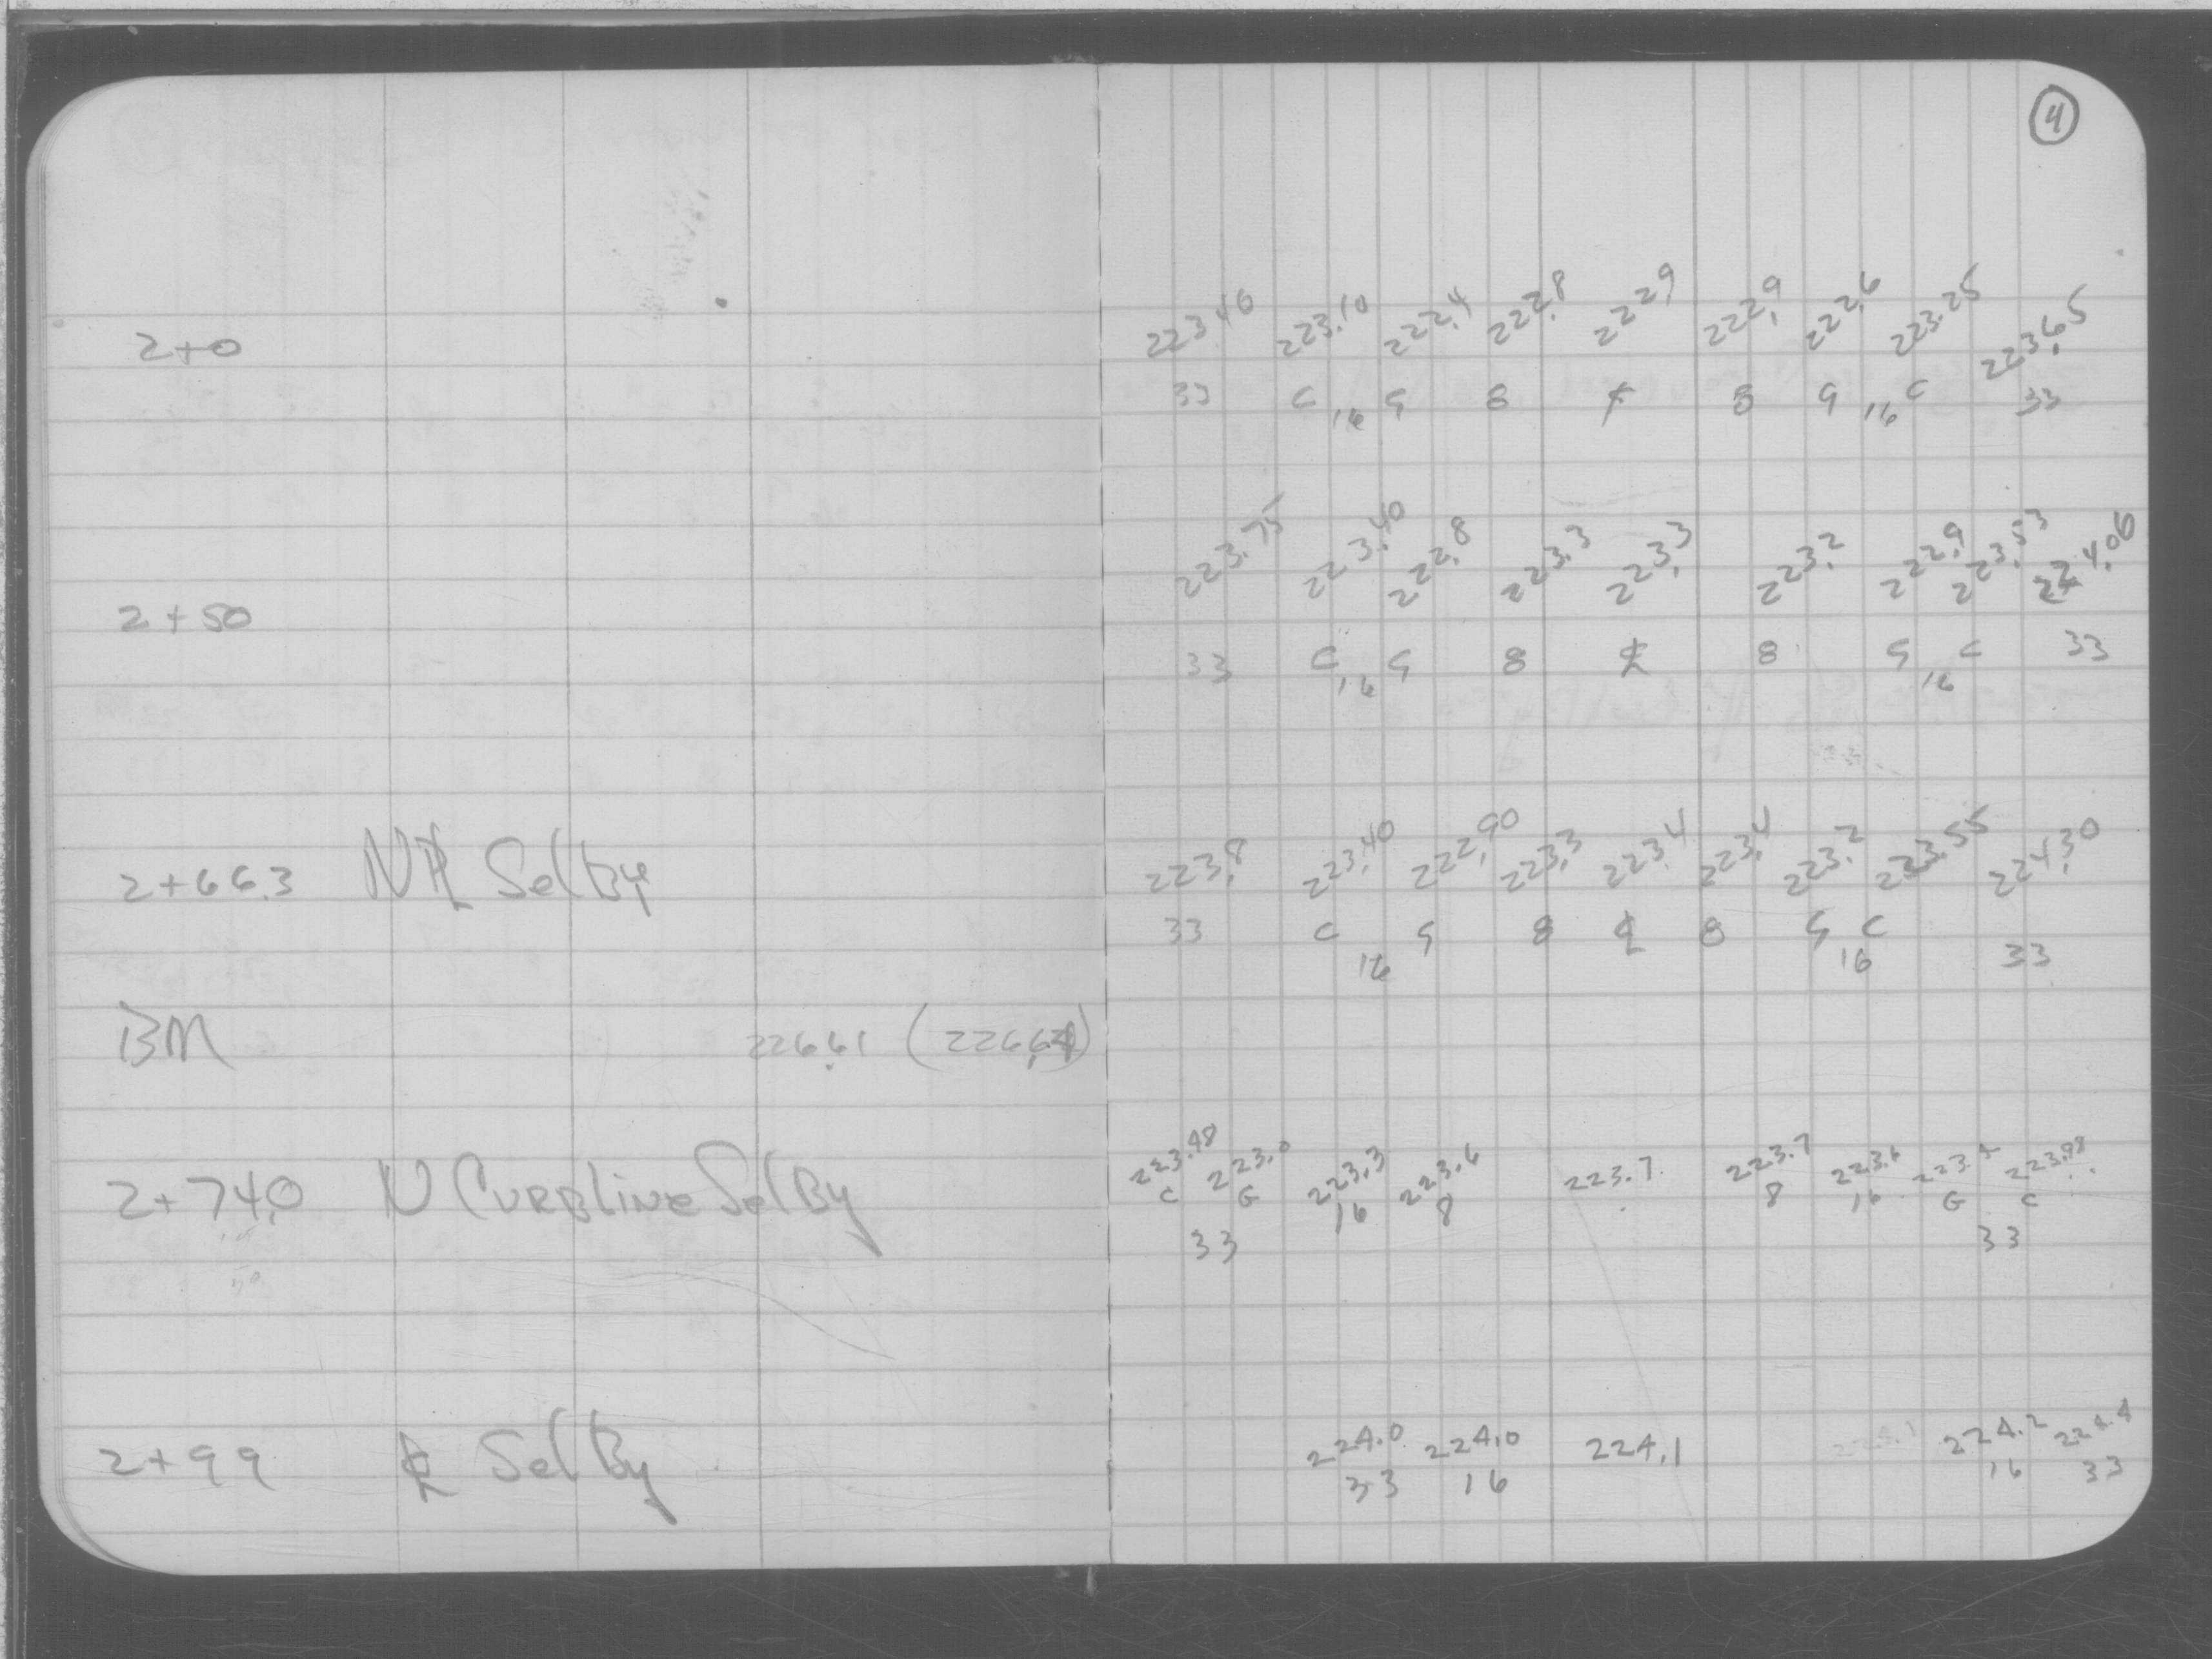 4
2+0 223.40 223.10 222.4 222.8 222.9 222.9 222.6 223.25 223.65
33 C 16 G 8 ℄ 8 G 16 C 33
2+50 223.75 223.40 222.8 223.3 223.3 223.2 222.9 223.53 224.06
33 C 16 G 8 ℄ 8 G 16 C 33
2+66.3 N℄ Selby 223.8 223.40 222.90 223.3 223.4 223.4 223.2 223.55 224.30
33 C 16 G 8 ℄ 8 G 16 C 33
BM 226.61
2+74.0 N Curbline Selby 223.48 223.0 223.3 223.6 223.7 223.7 223.6 223.4 223.98
C G 16 8 8 16 G C
33 33
2+99 ℄ Selby 224.0 224.0 224.1 224.2 224.4
33 16 16 33